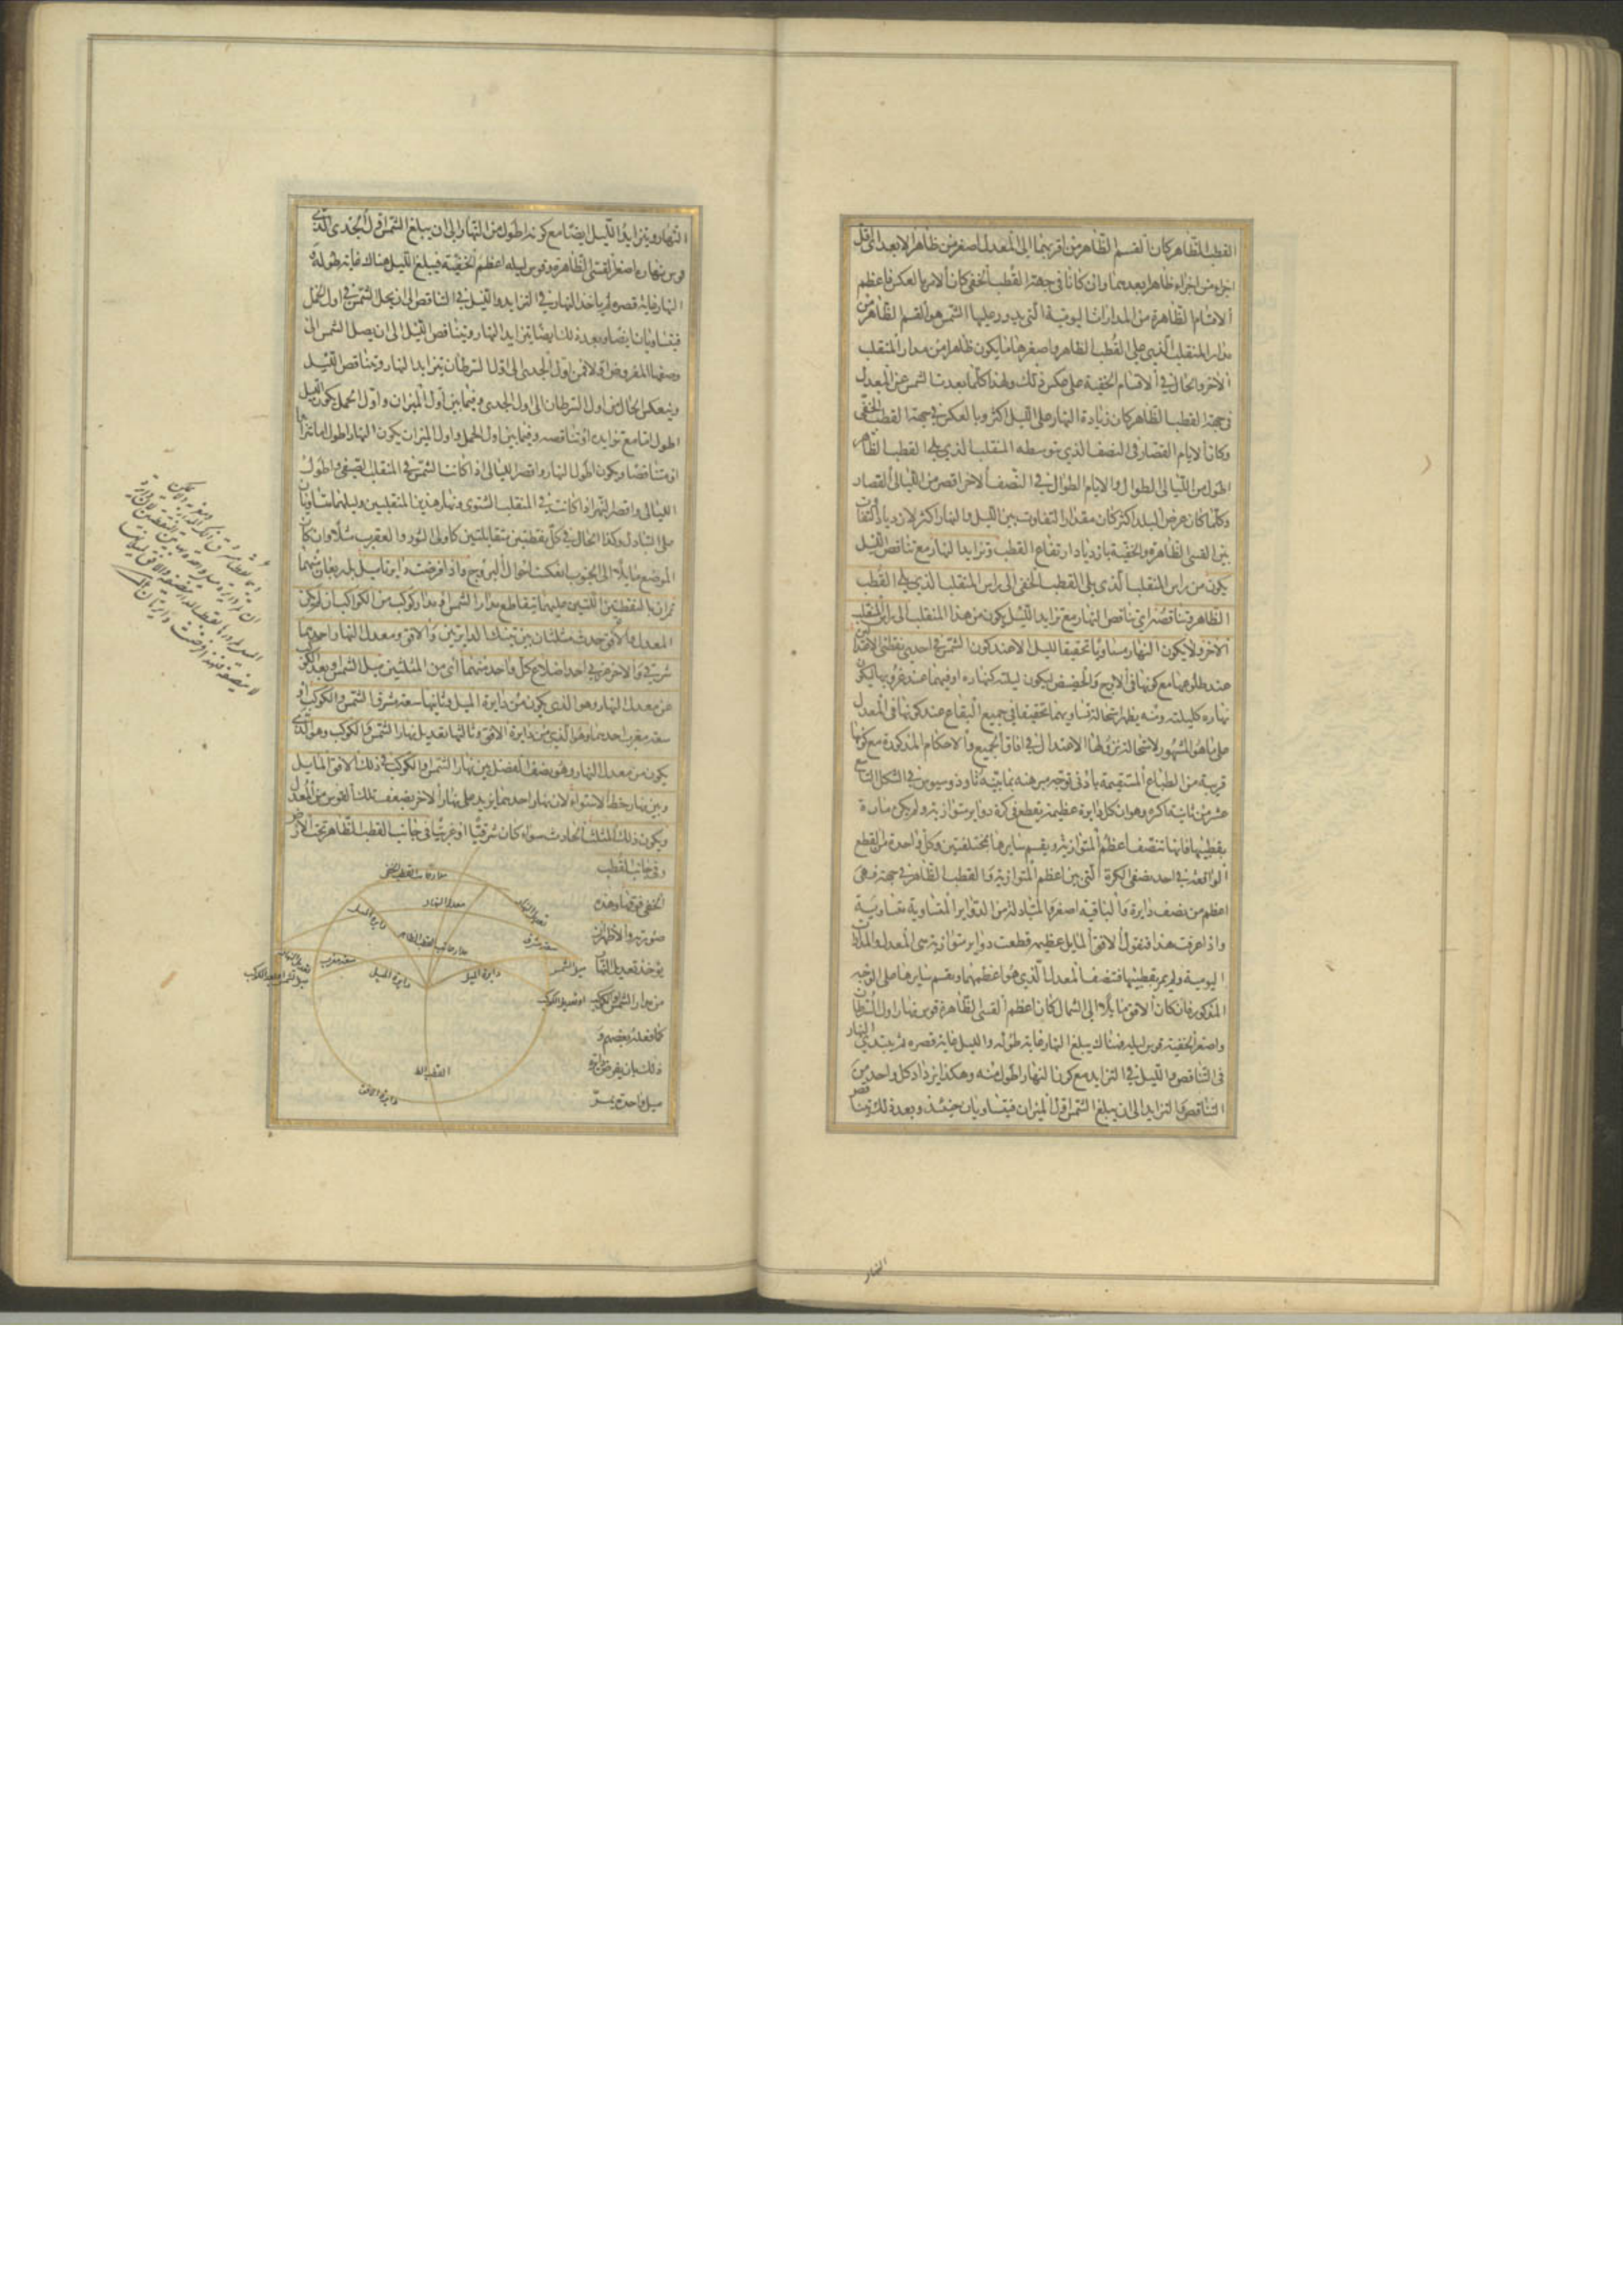 القطب الظاهر كان القسم الظاهر من اقربهما الى المعدل اصغر من ظاهر الابعد اى اقل
اجزاء من اجزاء ظاهر ابعدهما وان كانا فى جهة القطب الخفى كان الامر بالعكس فاعظم
الاقسام الظاهرة من المدارات اليومية التى يدور عليها الشمس هو القسم الظاهر من
مدار المنقلب الذى يلى القطب الظاهر واصغرها ما يكون ظاهرا من مدار المنقلب
الآخر والحال فى الاقسام الخفية على عكس ذلك ولهذا كلما بعدت الشمس عن المعدل
فى جهة القطب الظاهر كان زيادة النهار على الليل اكثر وبالعكس فى جهة القطب الخفى
وكان الايام القصار فى النصف الذى يتوسطه المنقلب الذى يلى القطب الظاهر
اطول من الليالى الطوال والايام الطوال فى النصف الآخر اقصر من الليالى القصار
وكلما كان عرض البلد اكثر كان مقدار التفاوت بين الليل والنهار اكثر لازدياد التفاوت
بين القسى الظاهرة والخفية بازدياد ارتفاع القطب وتزايد النهار مع تناقص الليل
يكون من راس المنقلب الذى يلى القطب الخفى الى راس المنقلب الذى يلى القطب
الظاهر وتناقصه اى تناقص النهار مع تزايد الليل يكون من هذا المنقلب الى راس المنقلب
الآخر ولا يكون النهار مساويا تحقيقا لليل الا عند كون الشمس فى احدى نقطتى الاعتدالين
عند طلوعها مع كونها فى الاوج والحضيض ليكون ليلته كنهاره او فيهما عند غروبها ليكون
نهاره كليلته ومنه يظهر استحالة تساويهما تحقيقا فى جميع البقاع عند كونها فى المعدل
على ما هو المشهور لاستحالة نزولها الاعتدال فى افاق الجميع والاحكام المذكورة مع كونها
قريبة من الطباع المستقيمة بادنى توجه مبرهنة بما بينه ثاوذوسيوس فى الشكل التاسع
عشر من ثانية اكره وهو ان كل دايرة عظيمة يقطع فى كرة دواير متوازية ولم يكن مارة
بقطبيها فانها تنصف اعظم المتوازية ويقسم سايرها بمختلفتين وكل واحدة من القطع
الواقعة فى احد نصفى الكرة التى بين اعظم المتوازية والقطب الظاهر فى جهته فهى
اعظم من نصف دايرة والباقية اصغر والمتبادلة من الدواير المتساوية متساوية
واذا عرفت هذا فنقول الافق المايل عظيمة قطعت دواير متوازية هى المعدل والمدارات
اليومية ولم يمر بقطبيها فتنصف المعدل الذى هو اعظمها ويقسم سايرها على الوجه
المذكور فان كان الافق مايلا الى الشمال كان اعظم القسى الظاهرة قوس نهار اول السرطان
واصغر الخفية قوس ليله فهناك يبلغ النهار غاية طوله والليل غاية قصره ثم يبتدى النهار
فى التناقص والليل فى التزايد مع كون النهار اطول منه وهكذا يزداد كل واحد من
التناقص والتزايد الى ان يبلغ الشمس اول الميزان فيتساويان حينئذ وبعد ذلك يتناقص
النهار
النهار ويتزايد الليل ايضا مع كونه اطول من النهار الى ان يبلغ الشمس اول الجدى الذى
قوس نهاره اصغر القسى الظاهرة وقوس ليله اعظم الخفية فيبلغ الليل هناك غاية طوله و
النهار غاية قصره ثم ياخذ النهار فى التزايد والليل فى التناقص الى ان يحل الشمس فى اول الحمل
فيتساويان ايضا وبعد ذلك ايضا يتزايد النهار ويتناقص الليل الى ان يصل الشمس الى
وصفها المفروض اولا فمن اول الجدى الى اول السرطان يتزايد النهار ويتناقص الليل
وينعكس الحال من اول السرطان الى اول الجدى وفيما بين اول الميزان واول الحمل يكون الليل
اطول اما مع تزايده او تناقصه وفيما بين اول الحمل واول الميزان يكون النهار اطول اما متزايدا
او متناقصا ويكون اطول النهار واقصر الليالى اذا كانت الشمس فى المنقلب الصيفى واطول
الليالى واقصر النهر اذا كانت فى المنقلب الشتوى ونهار هذين المنقلبين وليلهما متساويان
على التبادل وكذا الحال فى كل نقطتين متقابلتين كاولى الثور والعقرب مثلا وان كان
الموضع مايلا الى الجنوب انعكست احوال البروج واذا فرضت دايرتا ميل بل ربعان منهما
تمران بالنقطتين اللتين عليهما يتقاطع مدار الشمس او مدار كوكب من الكواكب ان لم يكن
المعدل والافق حدث مثلثان بين تينك الدايرتين والافق ومعدل النهار احدهما
شرقى والآخر غربى احد اضلاع كل واحد منهما اى من المثلثين ميل الشمس او بعد الكوكب
عن معدل النهار وهو الذى يكون من دايرة الميل وثانيها سعة مشرق الشمس والكوكب او
سعة مغرب احدهما وهو الذى من دايرة الافق وثالثها تعديل نهار الشمس والكوكب وهو الذى
يكون من معدل النهار وهو نصف الفضل بين نهار الشمس والكوكب فى ذلك الافق المايل
وبين نهار خط الاستواء لان نهار احدهما يزيد على نهار الآخر بضعف تلك القوس من المعدل
ويكون ذلك المثلث الحادث سواء كان شرقيا او غربيا فى جانب القطب الظاهر تحت الارض
وفى جانب القطب
الخفى فوقها وهذه
صورته والاظهر ان
يؤخذ تعديل النهار
من مدار الشمس والكوكب
كما فعله بعضهم و
ذلك بان يفرض دايرة
ميل واحدة يمر
مدار جانب القطب الخفى
معدل النهار
تعديل النهار
دايرة الميل
مدار جانب القطب الظاهر
سعة مشرق
سعة مغرب
ميل الشمس
دايرة الميل
دايرة الميل
تعديل النهار
دايرة الافق